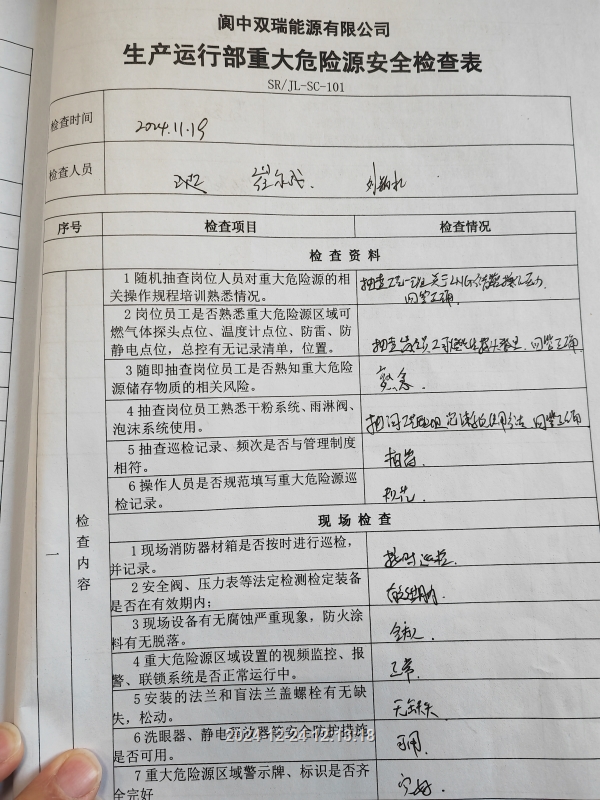 阆中双瑞能源有限公司
生产运行部重大危险源安全检查表
SR/JL-SC-101
检查时间
2024.11.19
检查人员
序号
检查项目
检查情况
检查资料
1 随机抽查岗位人员对重大危险源的相
关操作规程培训熟悉情况。
回答正确
2 岗位员工是否熟悉重大危险源区域可
燃气体探头点位、温度计点位、防雷、防
静电点位，总控有无记录清单，位置。
回答正确
3 随即抽查岗位员工是否熟知重大危险
源储存物质的相关风险。
熟悉.
4 抽查岗位员工熟悉干粉系统、雨淋阀、
泡沫系统使用。
回答正确
5 抽查巡检记录、频次是否与管理制度
相符.
相符。
6 操作人员是否规范填写重大危险源巡
检记录。
规范.
现场检查
一
检查内容
1 现场消防器材箱是否按时进行巡检，
并记录。
按时巡检.
2 安全阀、压力表等法定检测检定装备
是否在有效期内;
在有效期内.
3 现场设备有无腐蚀严重现象，防火涂
料有无脱落。
4 重大危险源区域设置的视频监控、报
警、联锁系统是否正常运行中。
正常.
5 安装的法兰和盲法兰盖螺栓有无缺
失，松动。
无缺失
6 洗眼器、静电释放器等安全防护措施
是否可用。
可用
7 重大危险源区域警示牌、标识是否齐
全完好
完好.
2024-12-24 12:16:18